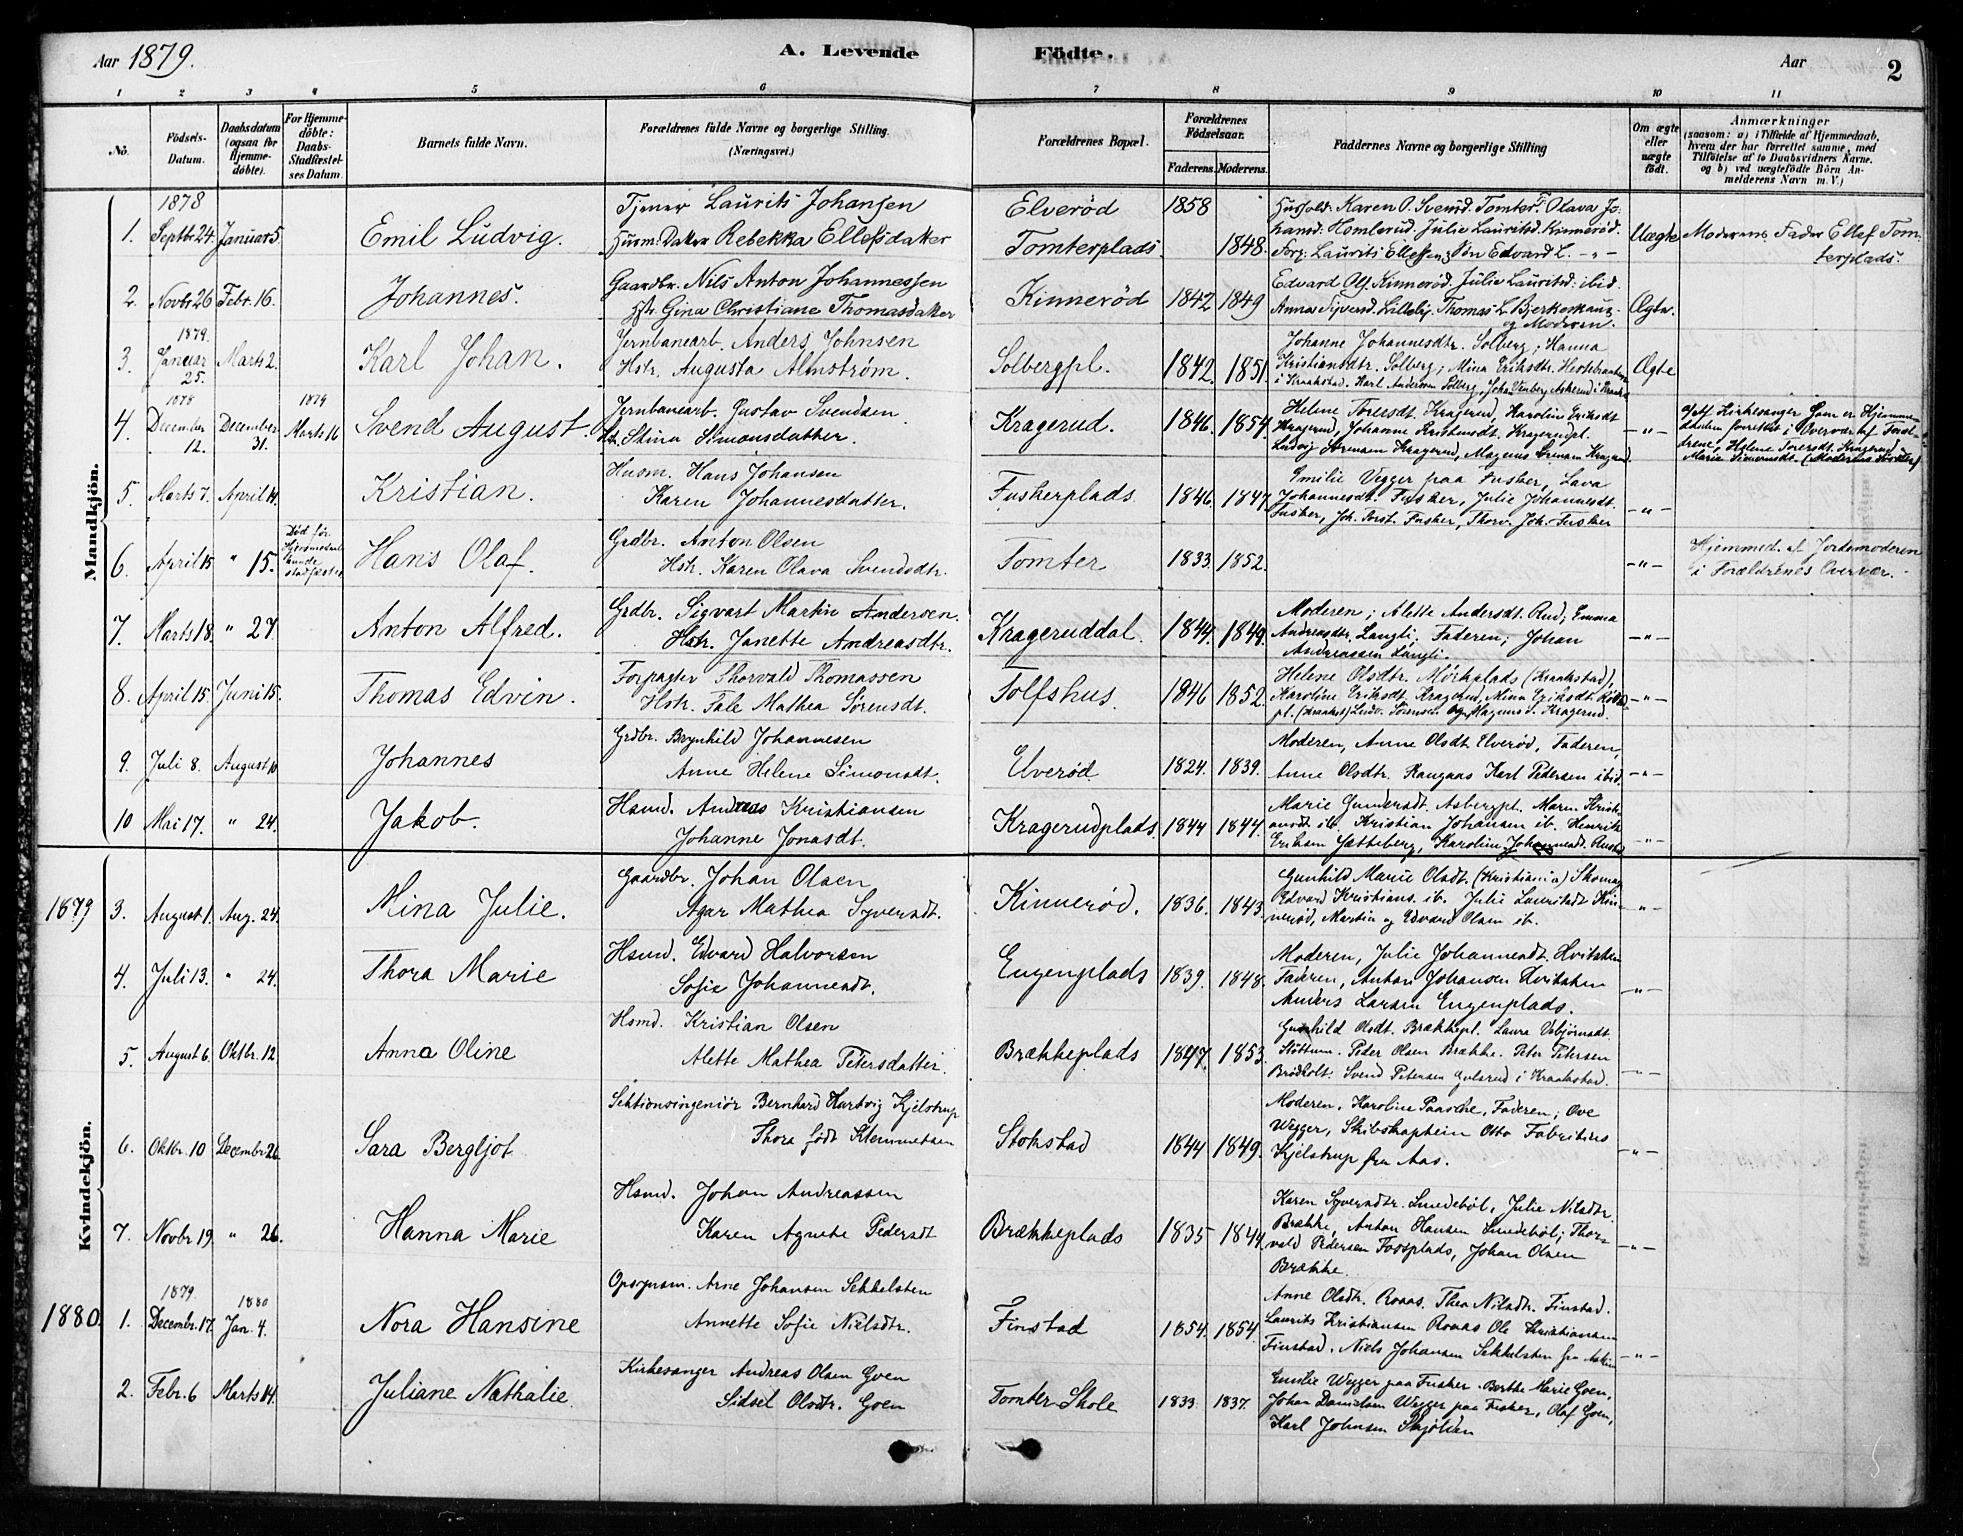 Aar 1879. A. Levende Födte. Aar 2
1 2 3 4 5 6 7 8 9 10 11
No. Födsels-Datum. Daabsdatum (ogsaa for Hjemmedöbte). For Hjemmedöbte: Daabs-Stadfæstelses Datum. Barnets fulde Navn. Forældrenes fulde Navne og borgerlige Stilling. (Næringsvei.) Forældrenes Bopæl. Forældrenes Födselsaar. Faderens. Moderens. Faddernes Navne og borgerlige Stilling Om ægte eller uægte födt. Anmærkninger (saasom: a) i Tilfælde af Hjemmedaab, hvem der har forrettet samme, med Tilföielse af to Daabsvidners Navne. og b) ved uægtefödte Börn Anmelderens Navn m. V.)
Mandkjön.
1878
1. Septbr 24. Januar 5. Emil Ludvig. Tjener Laurits Johansen
Husm. Datter Rebekka Ellefsdatter
Elverød Tomterplads 1858 1848.
Uægte Moderens Fader Ellef Tomterplads.
2. Novbr 26 Febr. 16. Johannes. Gaardbr. Nils Anton Johannessen
Hstr. Gina Christiane Thomasdatter
Kinnerød 1842 1849
Edvard Olf. Kinnerød. Julie Lauritsd. ibid.
og Moderen. Ægte.
1879.
3. Januar 25. Marts 2. Karl Johan. Jernbanearb. Anders Johnsen
Hstr. Augusta Almstrøm.
Solbergpl. 1842. 1851.
Johanne Johannesdtr. Solberg; Hanna
Kristiansdtr. Solberg; Mina Eriksdtr.
i Kraakstad. Karl Andersen Solberg, Ægte
1878 1879
4. December 12. December 31. Marts 16 Svend August. Jernbanearb. Gustav Svendsen
Hstr. Stina Simonsdatter.
Kragerud. 1846. 1854.
Helene Torersdt. Kragerud, Karoline Eriksdt
Kragerud, Johanne Kristensdt. Kragerudpl.
Ludvig Sørensen Kragerud, Magnus Sørensen Kragerud. — " —
af Kirkesanger
Helene Torersdt. Kragerud
Marie Simonsdt. (Moderens Søster)
5. Marts 7. April 14. Kristian. Husm. Hans Johansen
Karen Johannesdatter.
Fuskerplads 1846. 1847.
Emilie Vegger paa Fusker, Lava
Johannesdt. Fusker, Julie Johannesdt.
Fusker, Joh. Torst. Fusker, Thorv. Joh. Fusker — " —
6. April 15. " 15. Død før Hjemmedaab kunde stadfæstes Hans Olaf. Grdbr. Anton Olsen
Hstr. Karen Olava Svendsdtr.
Tomter 1833. 1852. — " —
Hjemmed. af Jordemoderen
i Forældrenes Overvær.
7. Marts 18. " 27. Anton Alfred. Grdbr. Sigvart Martin Andersen.
Hstr. Janette Andreasdtr.
Krageruddal. 1844. 1849.
Moderen; Alette Andersdt. Rud; Emma
Andreasdtr. Langli; Faderen; Johan
Andreassen Langli. — " —
8. April 15. Juni 15. Thomas Edvin. Forpagter Thorvald Thomassen
Hstr. Fale Mathea Sörensdt.
Tolfshus. 1846 1852.
Helene Olsdtr. Mörkplads (Kraakstad),
Karoline Eriksdt. Kragerud, Mina Eriksdt.
pl. (Kraakst.) Ludv. Sörensen og Magnus S. Kragerud. — " —
9. Juli 8. August 10 Johannes Grdbr. Brynhild Johannesen
Anne Helene Simonsdt.
Elverød 1824. 1839.
Moderen, Anne Olsdt. Elverød, Faderen,
Anne Olsdtr. Raugaas Karl Pedersen ibid. — " —
10 Mai 17. " 24. Jakob. Hsmd. Andreas Kristiansen
Johanne Jonasdt.
Kragerudplads. 1844 1844.
Marie Gundersdt. Asbergpl. Maren Kristiansdt. ib. Kristian Johansen ib. Henrik
Eriksen Sætteberg, Karoline Johannesdt. — " —
Kvindekjön.
1879 3. August 1. Aug. 24. Mina Julie. Gaardbr. Johan Olsen
Agar Mathea Syversdt.
Kinnerød. 1836. 1843.
Gunhild Marie Olsdt. (Kristiania) Skomag.
Edvard Kristians. ib. Julie Lauritsdt Kinnerød, Martin og Edvard Olsen ib. — " —
4. Juli 13. " 24. Thora Marie Hsmd. Edvard Halvorsen
Sofie Johannesdt.
Eugenplads 1839. 1848.
Moderen, Julie Johannesdt. Hvitsten
Faderen, Anton Johansen Hvitsten
Anders Larsen Eugenplads. — " —
5. August 6. Oktbr. 12. Anna Oline Hsmd. Kristian Olsen
Alette Mathea Petersdatter.
Brækkeplads 1847. 1853.
Gunhild Olsdt. Brækkepl. Laura Esbjørnsdt.
Støttum. Peder Olsen Brække. Peter Petersen
Brødholt. Svend Petersen Gulsrud i Kraakstad. — " —
6. Oktbr. 10 Decembr. 26. Sara Bergljot Sektionsingeniør Bernhard Hartvig Kjelstrup
Thora født Klemmetsen
Stokstad 1844 1849.
Moderen, Karoline Paasche, Faderen; Ove
Wegger, Skibskaptein Otto Fabritius
Kjelstrup fra Aas. — " —
7. Novbr. 19. " 26. Hanna Marie Hsmd. Johan Andreassen
Karen Agnete Pedersdt
Brækkeplads 1835 1844.
Karen Syversdtr. Smedebøl, Julie Nilsdtr.
Brække, Anton Hansen Smedebøl; Thorvald Pedersen Fossplads, Johan Olsen
Brække. — " —
1879. 1880
1880. 1. Decembr. 17. Jan. 4. Nora Hansine Opsynsm. Arne Johansen Sekkelsten
Annette Sofie Nielsdtr.
Finstad 1854. 1854.
Anne Olsdtr. Roaas. Thea Nilsdtr. Finstad.
Laurits Kristiansen Roaas Ole Kristiansen
Finstad. Niels Johansen Sekkelsten fra Askim — " —
2. Febr. 6 Marts 14. Juliane Nathalie. Kirkesanger Andreas Olsen Goen
Sidsel Olsdtr. Goen
Tomter Skole 1833. 1837.
Emilie Wegger paa Fusker. Berthe Marie Goen,
Johan Danielsen Wegger paa Fusker, Olaf Goen,
Karl Johnsen